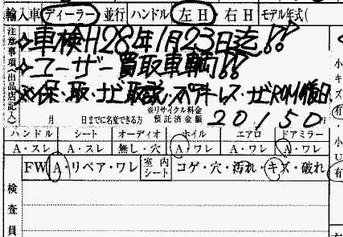 輸入車 ディーラー 並行 ハンドル 左H 右H モデル年式(
注意事項(出品店記入)
☆車検H28年1月23日迄!!
☆ユーザー買取車輌!!
☆保・取・ナビ取説・スペアキーレス・ナビROM後日
月 日までに名変できる方 ※リサイクル料金預託済金額 20150
ハンドル シート オーディオ ホイル エアロ ドアミラー
A・スレ A・スレ 無し・穴 A・ワレ A・ワレ A・ワレ
FW A・リペア・ワレ 室内シート コゲ・穴・汚れ・キズ・破れ
検査員
小キズ(有
小
有